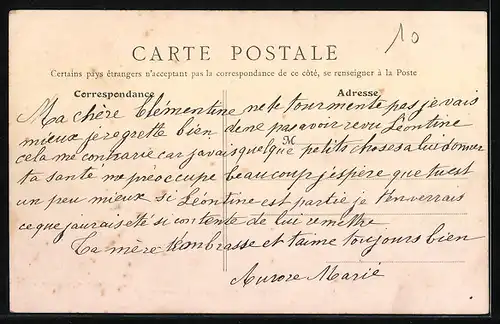 10
CARTE POSTALE
Certains pays étrangers n'acceptant pas la correspondance de ce côté, se renseigner à la Poste
Correspondance
Adresse
M
Ma chère Clémentine ne te tourmente pas je vais
mieux je regrette bien de ne pas avoir revu Léontine
cela me contrarie car javais quelque petits choses a lui donner
ta sante me preoccupe beaucoup jespère que tu est
un peu mieux si Léontine est partie je
ce que jaurais été si contente de lui remettre
Ta mère t'embrasse et taime toujours bien
Aurore Marie